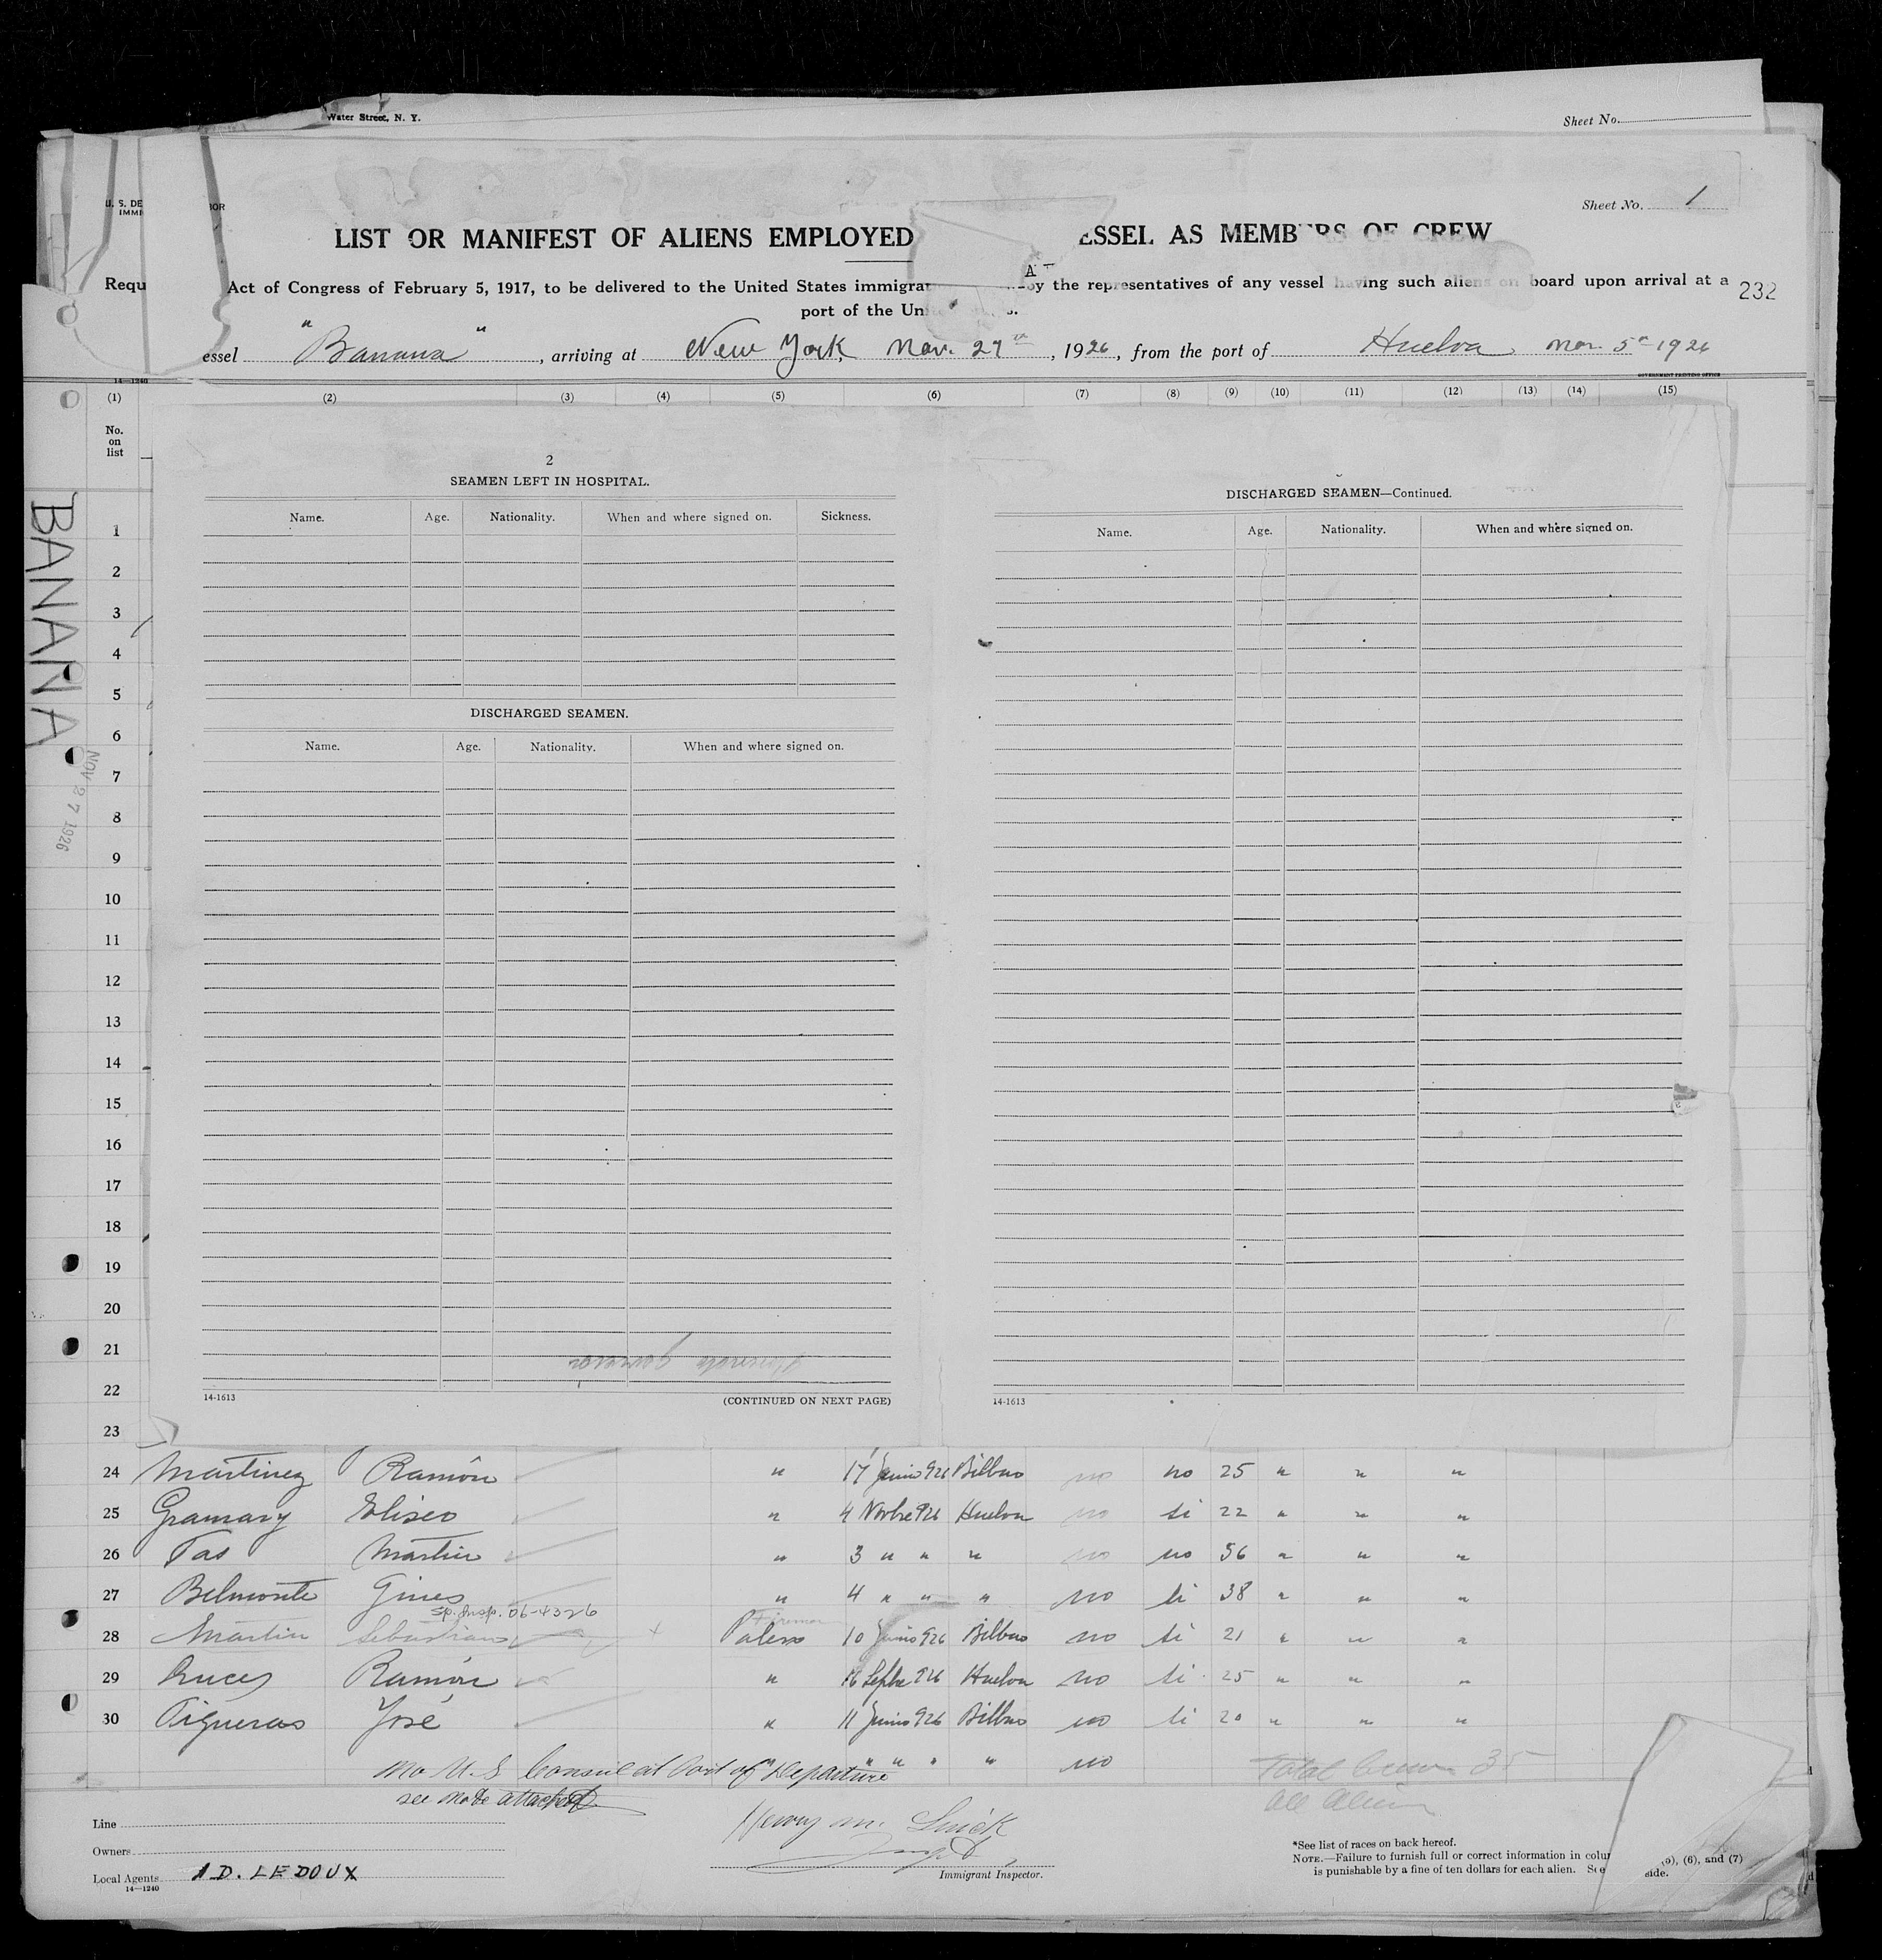 Water Street, N. Y.
Sheet No.
U. S. DE
IMMI
IOR
Sheet No. 1
LIST OR MANIFEST OF ALIENS EMPLOYED ESSEL AS MEMBERS OF CREW
Requ Act of Congress of February 5, 1917, to be delivered to the United States immigra by the representatives of any vessel having such aliens on board upon arrival at a
port of the Uni
232
essel "Banana", arriving at New York Nov. 27th, 1926, from the port of Huelva Nov. 5th 1926
14—1240
GOVERNMENT PRINTING OFFICE
(1) (2) (3) (4) (5) (6) (7) (8) (9) (10) (11) (12) (13) (14) (15)
No. on list
BANANA
NOV 27 1926
2
SEAMEN LEFT IN HOSPITAL.
Name. Age. Nationality. When and where signed on. Sickness.
DISCHARGED SEAMEN.
Name. Age. Nationality. When and where signed on.
14-1613
(CONTINUED ON NEXT PAGE)
DISCHARGED SEAMEN—Continued.
Name. Age. Nationality. When and where signed on.
14-1613
1
2
3
4
5
6
7
8
9
10
11
12
13
14
15
16
17
18
19
20
21
22
23
24 Martinez Ramón " 17 Junio 926 Bilbao no no 25 " " "
25 Gramary Eliseo " 4 Novbre 926 Huelva no si 22 " " "
26 Pas Martin " 3 " " " no no 56 " " "
27 Belmonte Gines " 4 " " " no si 38 " " "
Sp. Insp. 06-4326
Fireman
28 Martin Sebastian x Palero 10 Junio 926 Bilbao no si 21 " " "
29 Luces Ramón " 16 Sepbre 926 Huelva no si 25 " " "
30 Figueras José " 11 Junio 926 Bilbao no si 20 " " "
No U.S Consul at Port of Departure " " " " no
see note attached
Total Crew 35
All Alien
Line
Owners
Local Agents A. D. LEDOUX
14—1240
Henry M.
Insp't
Immigrant Inspector.
*See list of races on back hereof.
NOTE.—Failure to furnish full or correct information in colu (5), (6), and (7)
is punishable by a fine of ten dollars for each alien. See side.